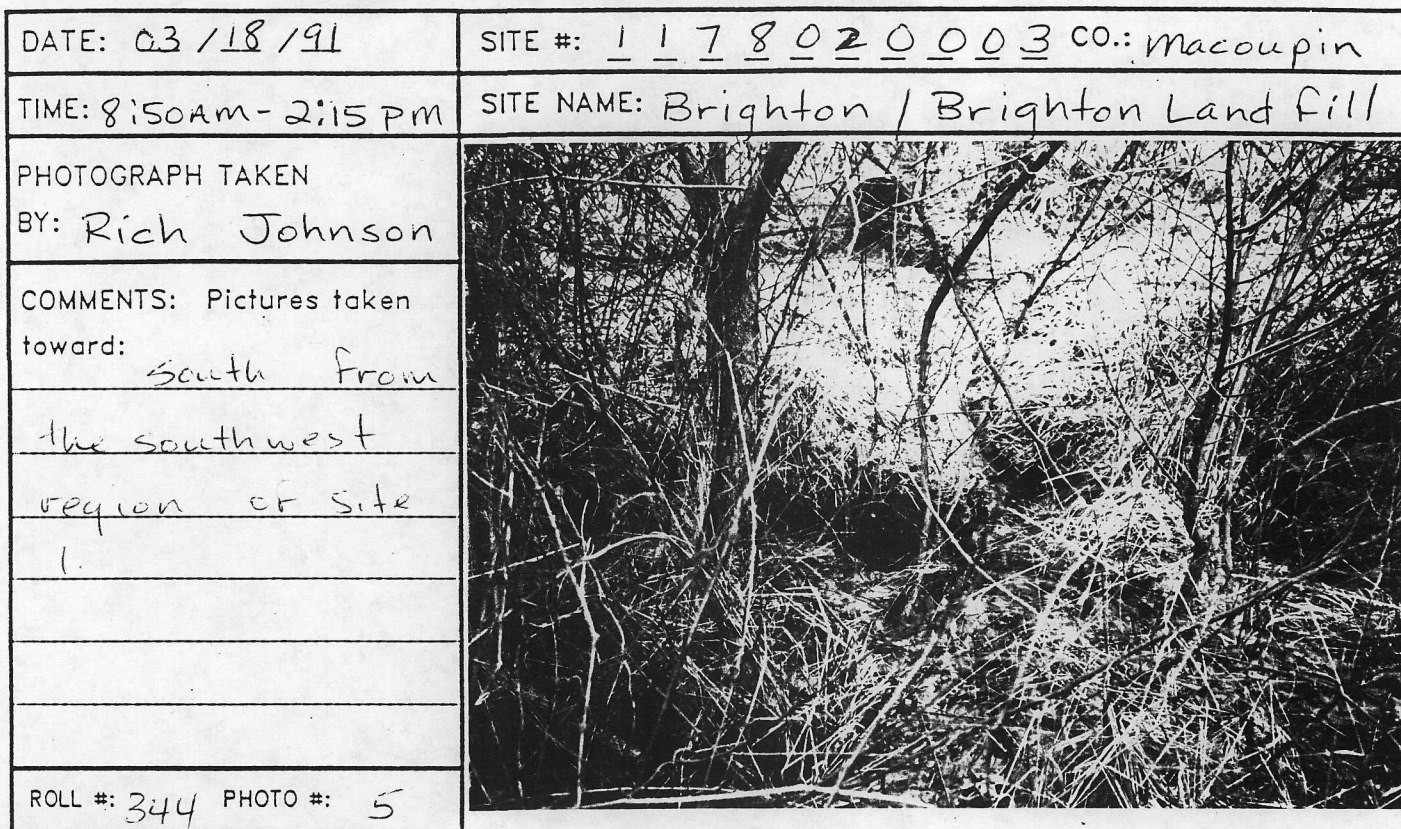 DATE: 03/18/91
SITE #: 1 1 7 8 0 2 0 0 0 3 CO.: Macoupin
TIME: 8:50AM - 2:15 PM
SITE NAME: Brighton / Brighton Land fill
PHOTOGRAPH TAKEN
BY: Rich Johnson
COMMENTS: Pictures taken
toward:
south from
the southwest
region of site
1.
ROLL #: 344 PHOTO #: 5